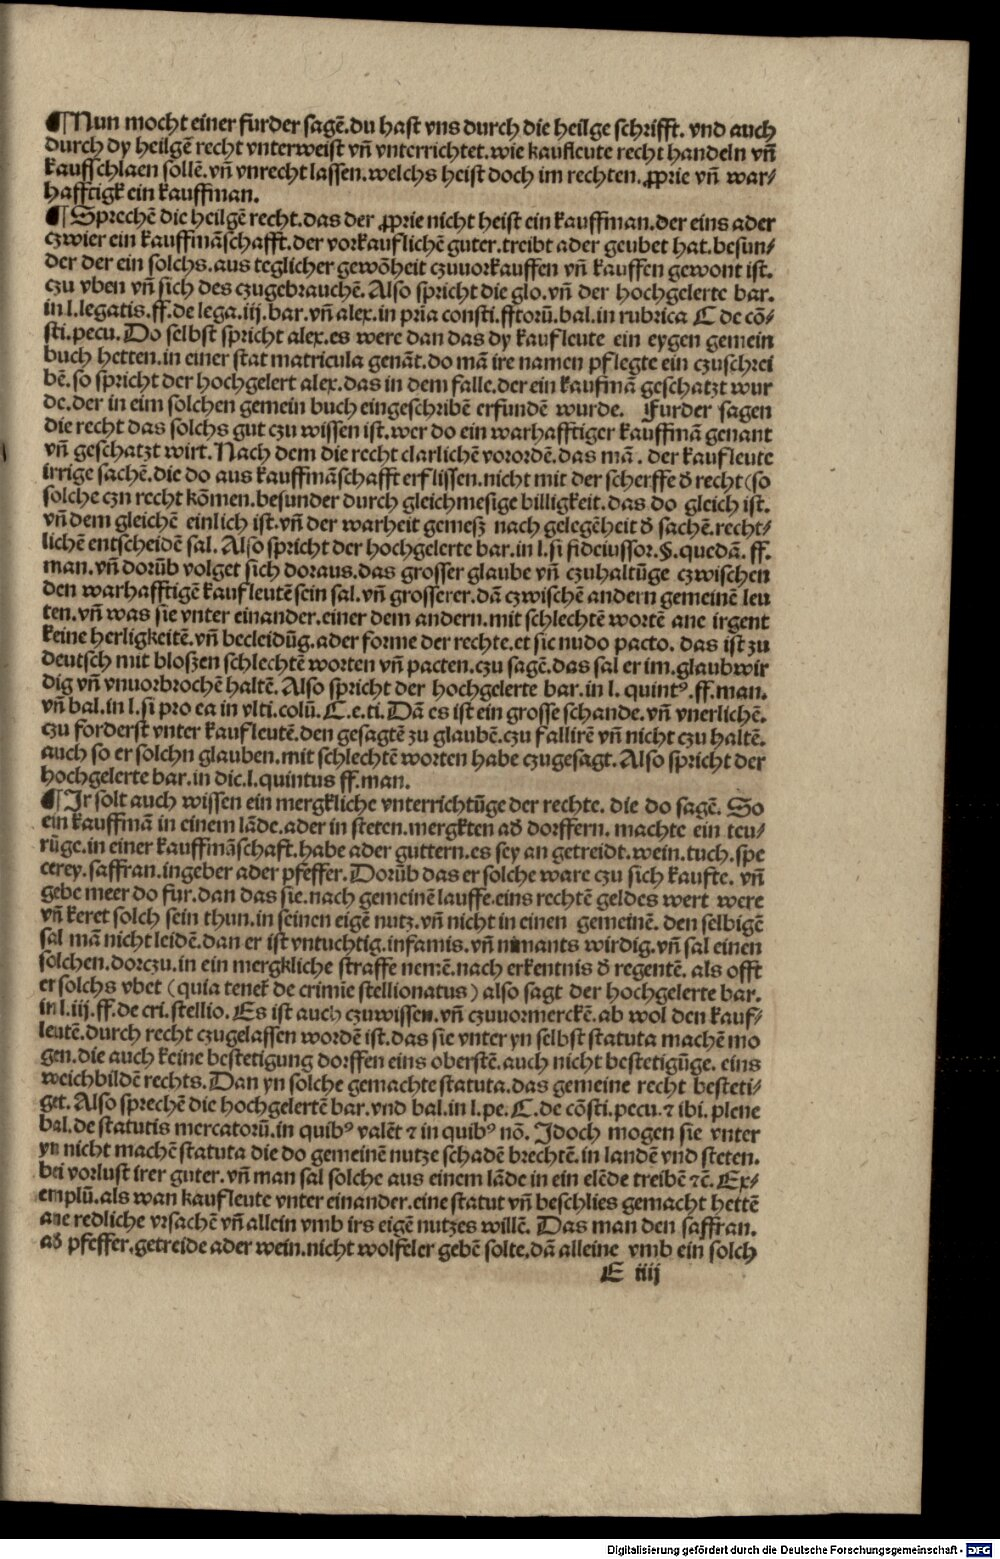 ¶ Nun mocht einer furder sagē.du hast vns durch die heilge schrifft. vnd auch
durch dy heilgē recht vnterweist vn̄ vnterrichtet.wie kaufleute recht handeln vn̄
kauffschlaen sollē.vn̄ vnrecht lassen.welchs heist doch im rechten. ꝓprie vn̄ war⸗
hafftigk ein kauffman.
¶ Sprechē die heilgē recht.das der ꝓprie nicht heist ein kauffman.der eins ader
czwier ein kauffmāschafft.der vorkauflichē guter.treibt ader geubet hat.besun⸗
der der ein solchs.aus teglicher gewōheit czuuorkauffen vn̄ kauffen gewont ist.
czu vben vn̄ sich des czugebrauchē. Also spricht die glo.vn̄ der hochgelerte bar.
in l.legatis.ff.de lega.iij.bar.vn̄ alex.in pria consti.fftorū.bal.in rubrica C de cō⸗
sti.pecu. Do selbst spricht alex.es were dan das dy kaufleute ein eygen gemein
buch hetten.in einer stat matricula genāt.do mā ire namen pflegte ein czuschrei
bē.so spricht der hochgelert alex.das in dem falle.der ein kaufmā geschatzt wur
de.der in eim solchen gemein buch eingeschribē erfundē wurde. Furder sagen
die recht das solchs gut czu wissen ist.wer do ein warhafftiger kauffmā genant
vn̄ geschatzt wirt. Nach dem die recht clarlichē vorordē.das mā . der kaufleute
irrige sachē.die do aus kauffmāschafft erflissen.nicht mit der scherffe ď recht (so
solche czn recht kōmen.besunder durch gleichmesige billigkeit.das do gleich ist.
vn̄ dem gleichē einlich ist.vn̄ der warheit gemesz nach gelegēheit ď sachē.recht⸗
lichē entscheidē sal. Also spricht der hochgelerte bar.in l.si fideiussor.§.quedā. ff.
man.vn̄ dorūb volget sich doraus.das grosser glaube vn̄ czuhaltūge czwischen
den warhafftigē kaufleutē sein sal.vn̄ grosserer.dā czwischē andern gemeinē leu
ten.vn̄ was sie vnter einander.einer dem andern.mit schlechtē wortē ane irgent
keine herligkeitē.vn̄ becleidūg.ader forme der rechte.et sic nudo pacto. das ist zu
deutsch mit bloszen schlechtē worten vn̄ pacten.czu sagē.das sal er im.glaubwir
dig vn̄ vnuorbrochē haltē. Also spricht der hochgelerte bar.in l. quintꝰ.ff.man.
vn̄ bal.in l.si pro ea in vlti.colū. C.e.ti. Dā es ist ein grosse schande.vn̄ vnerlichē.
czu forderst vnter kaufleutē.den gesagtē zu glaubē.czu fallirē vn̄ nicht czu haltē.
auch so er solchn glauben.mit schlechtē worten habe czugesagt. Also spricht der
hochgelerte bar.in dic.l.quintus ff.man.
¶ Ir solt auch wissen ein mergkliche vnterrichtūge der rechte. die do sagē. So
ein kauffmā in einem lāde.ader in steten.mergkten aď dorffern. machte ein teu⸗
rūge.in einer kauffmāschaft.habe ader guttern.es sey an getreidt.wein.tuch.spe
cerey.saffran.ingeber ader pfeffer. Dorūb das er solche ware czu sich kaufte. vn̄
gebe meer do fur.dan das sie.nach gemeinē lauffe.eins rechtē geldes wert were
vn̄ keret solch sein thun.in seinen eigē nutz.vn̄ nicht in einen gemeinē. den selbigē
sal mā nicht leidē.dan er ist vntuchtig.infamis.vn̄ nimants wirdig.vn̄ sal einen
solchen.dorczu.in ein mergkliche straffe nemē.nach erkentnis ď regentē. als offt
er solchs vbet (quia teneť de crimīe stellionatus) also sagt der hochgelerte bar.
in l.iij.ff.de cri.stellio. Es ist auch czuwissen.vn̄ czuuormerckē.ab wol den kauf⸗
leutē.durch recht czugelassen wordē ist.das sie vnter yn selbst statuta machē mo
gen.die auch keine bestetigung dorffen eins oberstē.auch nicht bestetigūge. eins
weichbildē rechts. Dan yn solche gemachte statuta.das gemeine recht besteti⸗
get. Also sprechē die hochgelertē bar.vnd bal.in l.pe. C.de cōsti.pecu.⁊ ibi.plene
bal.de statutis mercatorū.in quibꝰ valēt ⁊ in quibꝰ nō. Idoch mogen sie vnter
yn nicht machē statuta die do gemeinē nutze schadē brechtē.in landē vnd steten.
bei vorlust irer guter.vn̄ man sal solche aus einem lāde in ein elēde treibē ⁊c̄. Ex⸗
emplū.als wan kaufleute vnter einander.eine statut vn̄ beschlies gemacht hettē
ane redliche vrsachē vn̄ allein vmb irs eigē nutzes willē. Das man den saffran.
aď pfeffer.getreide ader wein.nicht wolfeler gebē solte.dā alleine vmb ein solch
E iiij
Digitalisierung gefördert durch die Deutsche Forschungsgemeinschaft - DFG